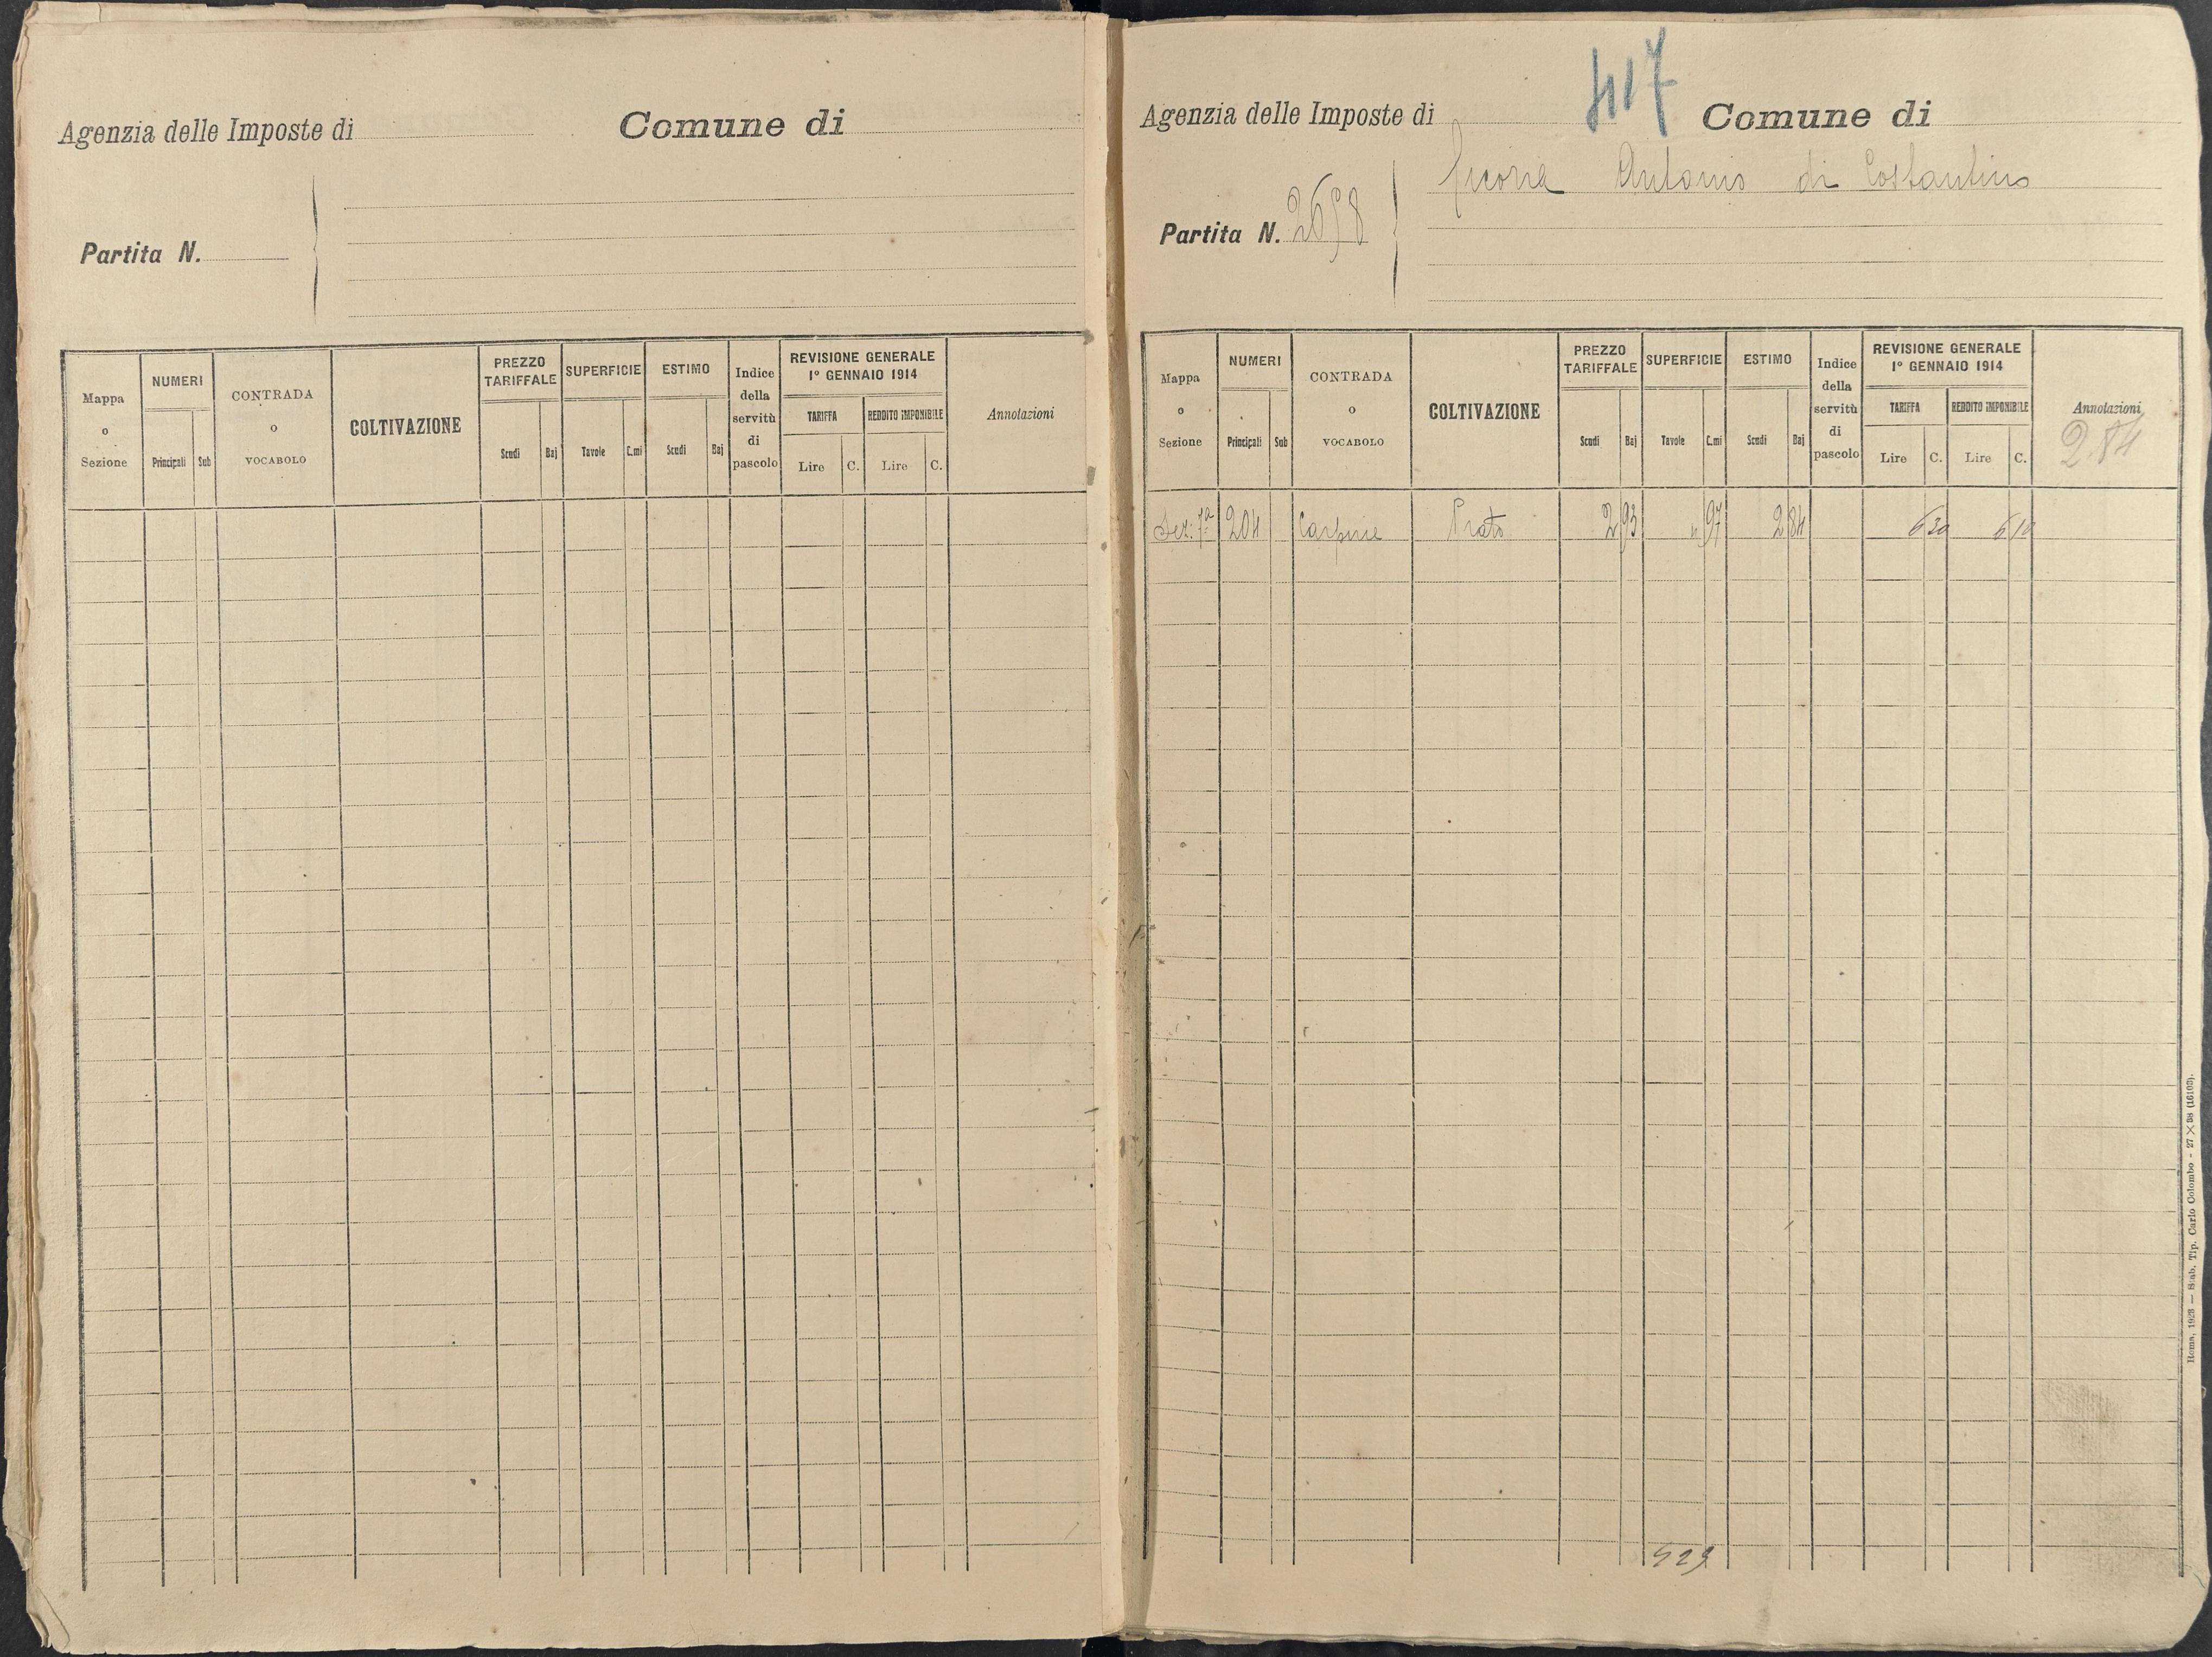 Agenzia delle Imposte di Comune di
Partita N.
Mappa o Sezione
NUMERI
Principali Sub
CONTRADA O VOCABOLO
COLTIVAZIONE
PREZZO TARIFFALE
Scudi Baj
SUPERFICIE
Tavole C.mi
ESTIMO
Scudi Baj
Indice della servitù di pascolo
REVISIONE GENERALE
1° GENNAIO 1914
TARIFFA REDDITO IMPONIBILE
Lire C. Lire C.
Annotazioni
417
Agenzia delle Imposte di Comune di
Antonio di Costantino
Partita N. 2698
Mappa o Sezione
NUMERI
Principali Sub
CONTRADA O VOCABOLO
COLTIVAZIONE
PREZZO TARIFFALE
Scudi Baj
SUPERFICIE
Tavole C.mi
ESTIMO
Scudi Baj
Indice della servitù di pascolo
REVISIONE GENERALE
1° GENNAIO 1914
TARIFFA REDDITO IMPONIBILE
Lire C. Lire C.
Annotazioni
2.84
Sez: 7ª 204 Prato 2 93 " 97 2 84 6 30 6 10
529
Roma, 1923 — Stab. Tip. Carlo Colombo - 27 × 38 (16103).